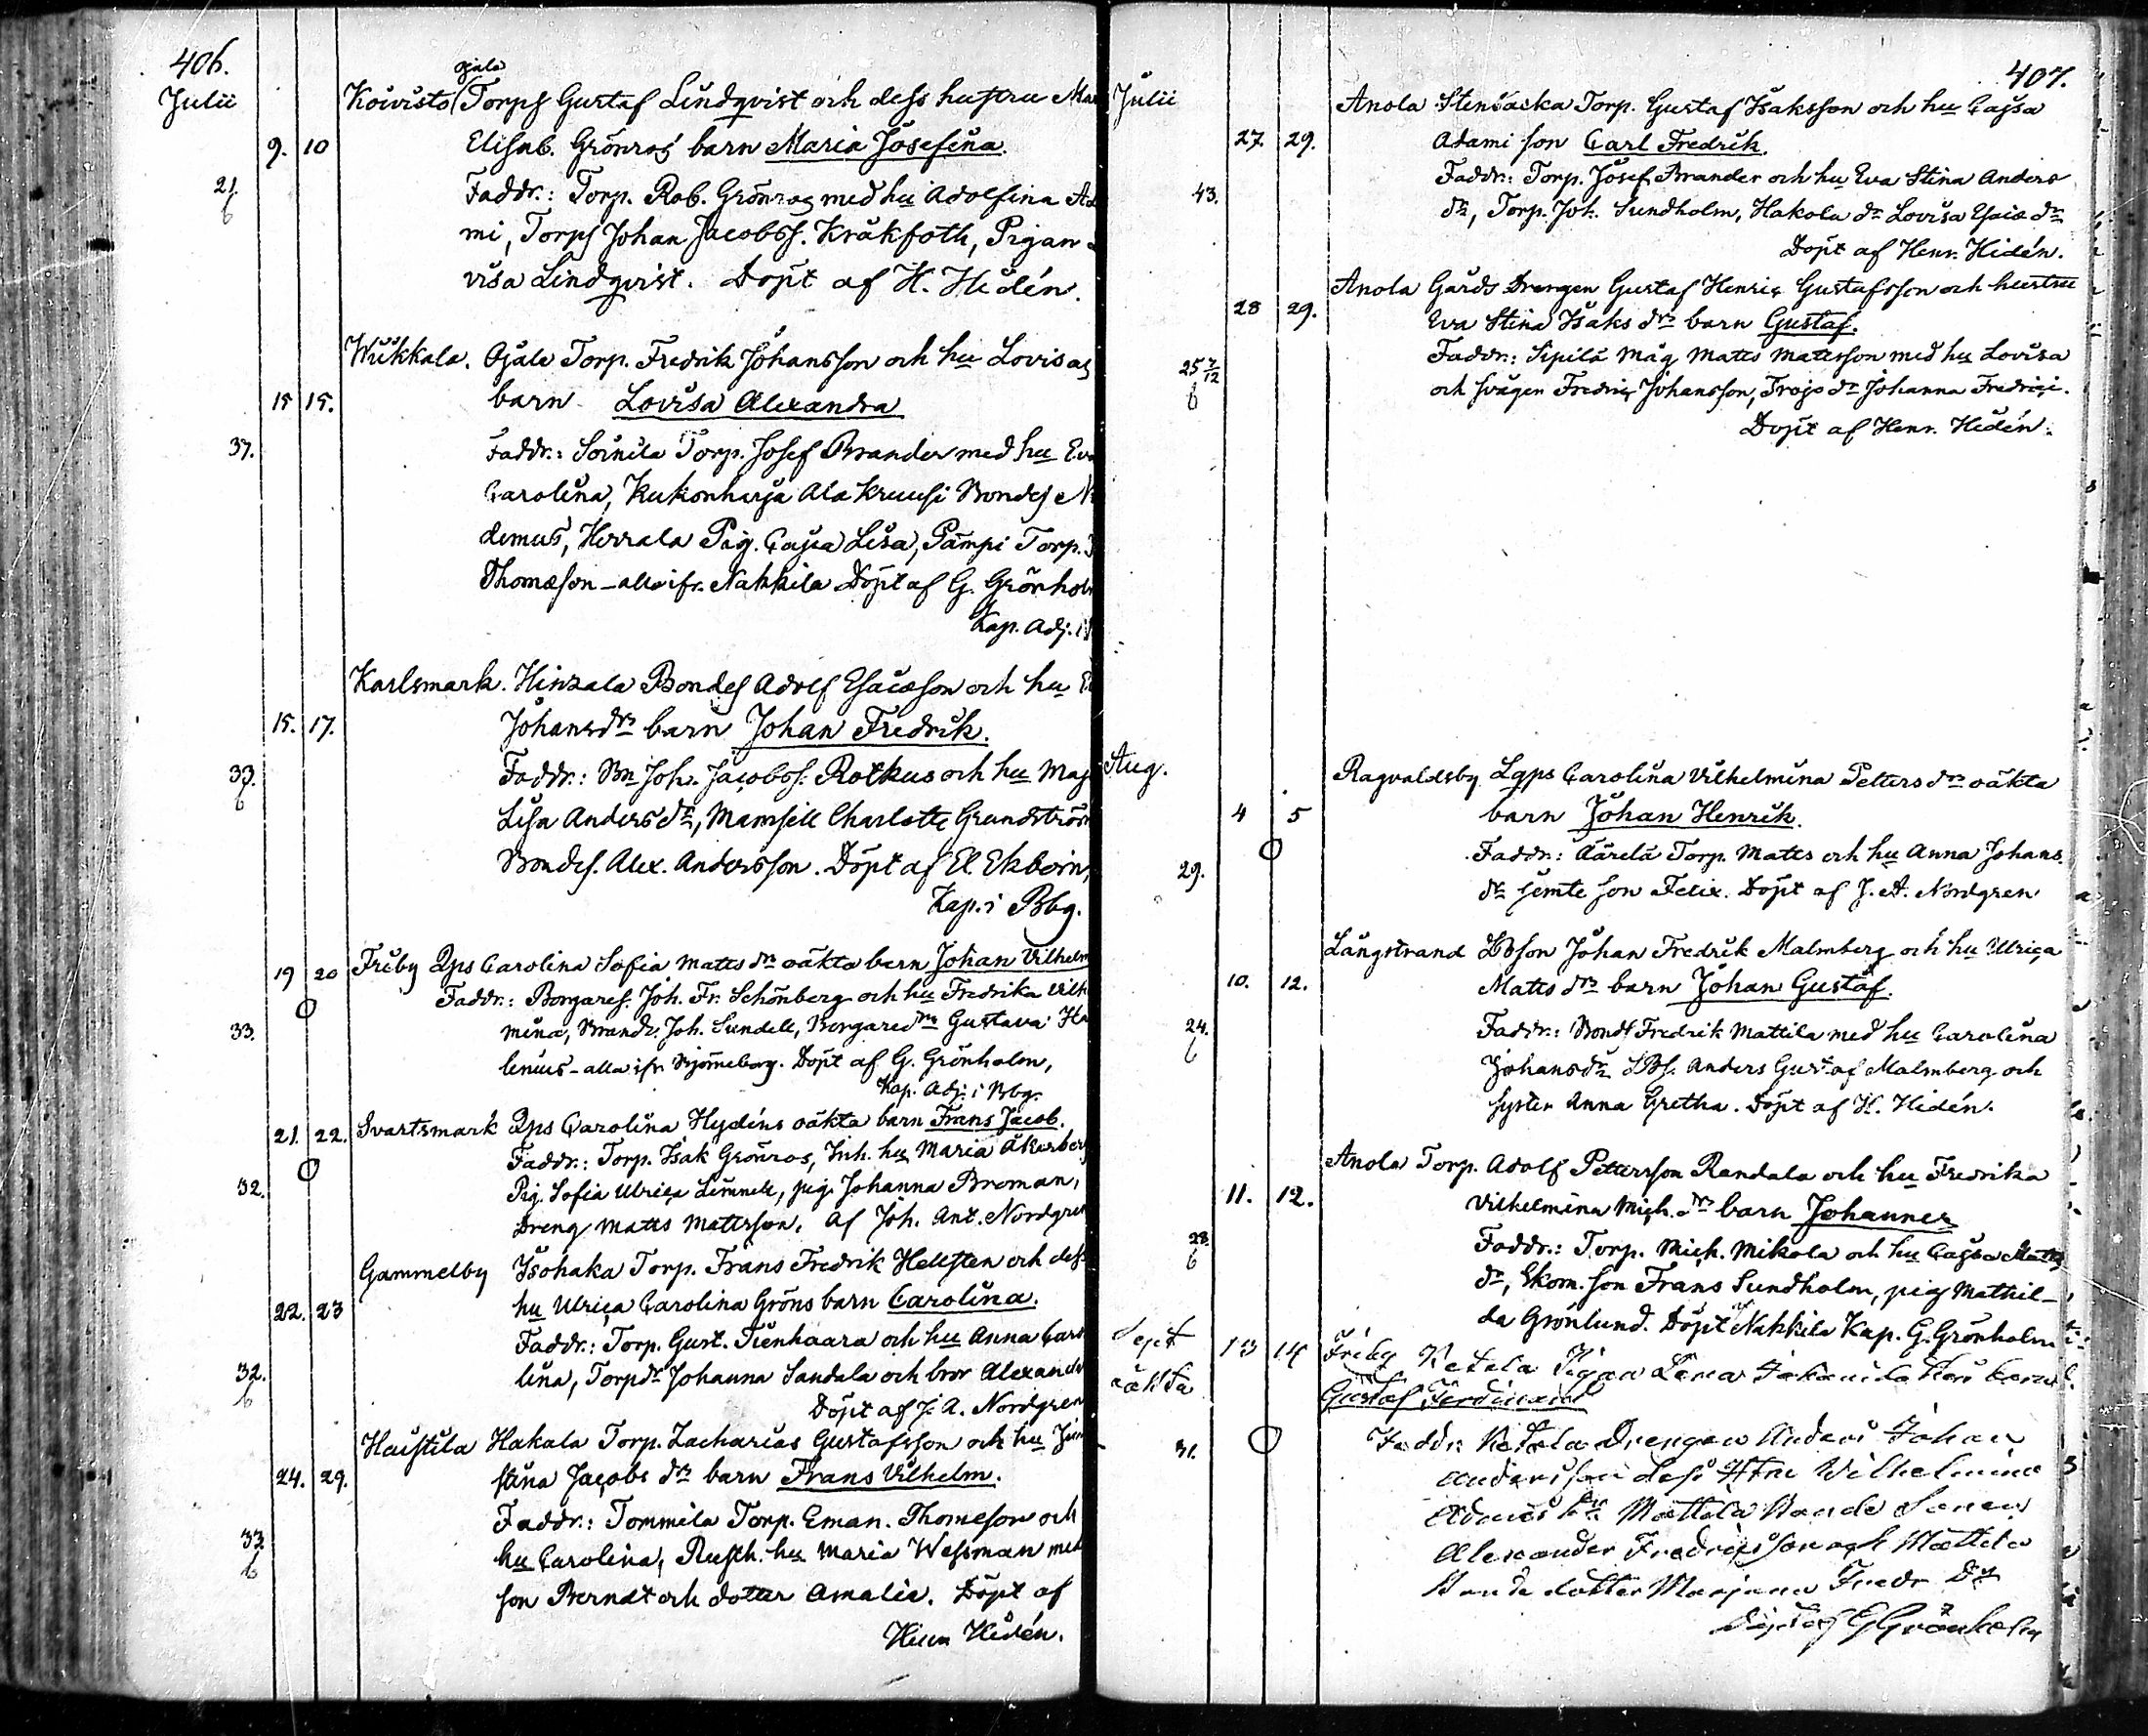 406.
Julii
Koivisto Ojala Torps Gustaf Lindqvist och dess hustru Ma
9. 10 Elisab. Grönros barn Maria Josefina.
21. Faddr.: Torp. Rob. Grönros med hu Adolfina Ada
6 mi, Torps Johan Jacobss. Kråkfoth, Pigan
visa Lindqvist. Döpt af H. Hidén.
Wiikkala. Ojala Torp. Fredrik Johansson och hu Lovisa
15 15. barn Lovisa Alexandra
37. Faddr.: Soinila Torp. Josef Brander med hu Eva
Carolina, Kukonharja Ala Kruusi Bondes N
demus, Herrala Pig. Cajsa Lisa, Pämpi Torp.
Thomæson - alla ifr. Nakkila Döpt af G. Grönholm
Kap. Adj. i
Karlsmark. Hinzala Bondes Adolf Esaiæson och hu
15. 17. Johansdr barn Johan Fredrik.
33. Faddr.: Bn Joh. Jacobss. Rotkus och hu Maj
6 Lisa Andersdr, Mamsell Charlotte Grundström
Bondes. Alex. Andersson. Döpt af El. Ekbom,
Kap. i Bbg.
19 20 Friby Qps Carolina Sofia Mattsdr oäkta barn Johan Vilhelm
Faddr.: Borgares. Joh. Fr. Schönberg och hu Fredrika Vilh
33. mina, Brandv. Joh. Sundell, Borgaredr Gustava Ha
lenius - alla ifr Björneborg. Döpt af G. Grönholm,
Kap. Adj. i Bbg.
21. 22. Svartsmark Qps Carolina Hydéns oäkta barn Frans Jacob.
Faddr.: Torp. Isak Grönros, Inh. hu Maria Åkerberg
32. Pig. Sofia Ulrica Limnell, pig. Johanna Broman,
Dreng Matts Mattsson. Af Joh. Ant. Nordgren
Gammelby Isohaka Torp. Frans Fredrik Hellsten och dess
22. 23 hu Ulrica Carolina Gröns barn Carolina.
Faddr.: Torp. Gust. Tienhaara och hu Anna Caro
32. lina, Torpdr Johanna Sandala och bror Alexander
6 Döpt af J. A. Nordgren
Haistila Hakala Torp. Zacharias Gustafsson och hu
24. 29. stina Jacobs dr barn Frans Vilhelm.
Faddr.: Tommila Torp. Eman. Thomeson och
33. hu Carolina, Rusth. hu Maria Wessman med
6 son Berndt och dotter Amalia. Döpt af
Henr Hidén.
407.
Julii
Anola Stensacka Torp. Gustaf Isaksson och hu Cajsa
27. 29. Adami son Carl Fredrik.
Faddr.: Torp. Josef Brander och hu Eva Stina Anders
43. dr, Torp. Joh. Sundholm, Hakola dr Lovisa Esaiæ dr
Döpt af Henr. Hidén.
Anola Gårds Drengen Gustaf Henric Gustafsson och hustru
28 29. Eva Stina Isaks dr barn Gustaf.
25 7/12 Faddr.: Sipilä Måg Matts Mattsson med hu Lovisa
6 och svågen Fredric Johansson, Trojs dr Johanna Fredrici.
Döpt af Henr. Hidén.
Aug.
Ragvaldsby Lqps Carolina Vilhelmina Petters dr oäkta
4 5 barn Johan Henrik.
Faddr.: Äärelä Torp. Matts och hu Anna Johans
29. dr jemte son Felix. Döpt af J. A. Nordgren
Långstrand LBson Johan Fredrik Malmberg och hu Ulrica
10. 12. Matts dr barn Johan Gustaf.
24. Faddr.: Bonds Fredrik Mattila med hu Carolina
6 Johansdr LBs. Anders Gustaf Malmberg och
syster Anna Gretha. Döpt af H. Hidén.
Anola Torp. Adolf Pettersson Randala och hu Fredrika
11. 12. Vilhelmina Mich. dr barn Johannes
28. Faddr.: Torp. Mich. Mikola och hu Cajsa Matts
6 dr, Ekom. son Frans Sundholm, pig Mathil-
da Grönlund. Döpt af Nakkila Kap. G. Grönholm
Sept 13 14 Friby Ketala Pigan Lena barn
oäkta Gustaf Ferdinand
31. Faddr: Ketala Drengen Anders Johan
Andersson dess Htru Vilhelmina
Adams dr Mattila Bonde Sonen
Alexander Fredricsson och Mattila
Bonde dotter Marjana Fredr Dr
Döpt af G Grönholm